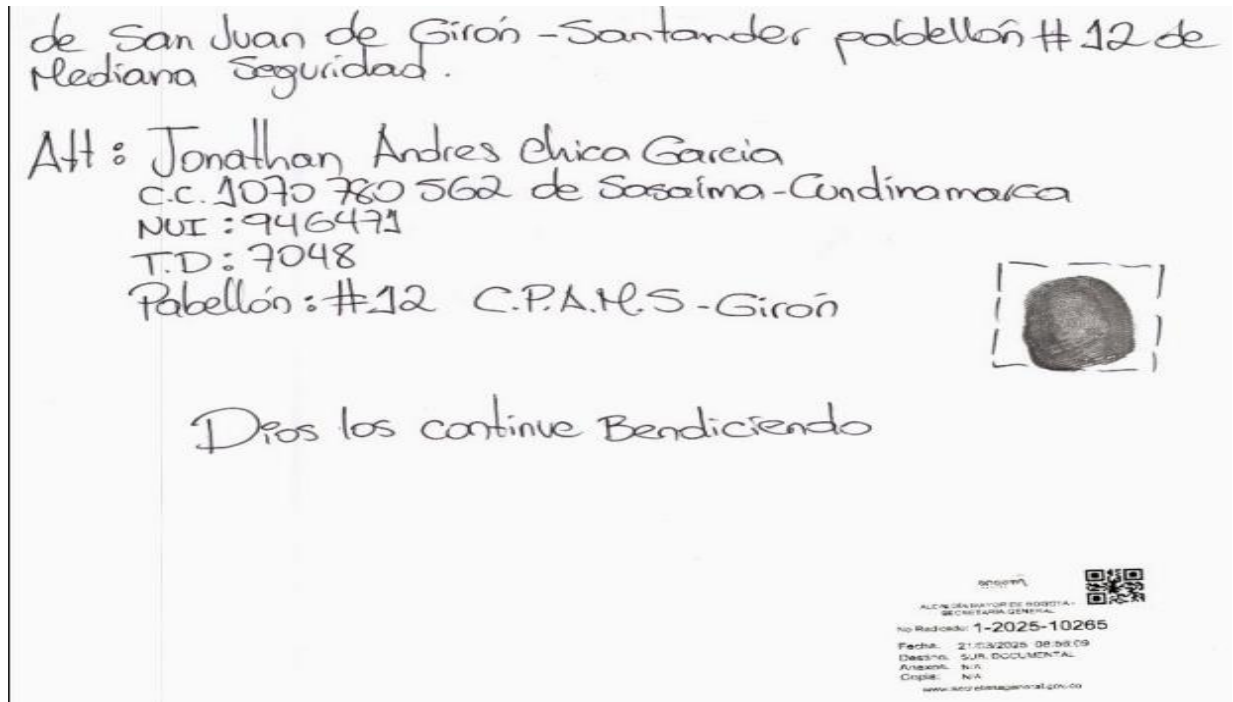 de San Juan de Girón - Santander pabdellón # 12 de
Mediana Seguridad.
Att: Jonathan Andres Chica Garcia
C.C. 1070 780 562 de Sasaima - Cundinamarca
NUI: 946471
T.D: 7048
Pabellón: #12 C.P.A.M.S - Girón
Dios los continue Bendiciendo
ALCALDÍA MAYOR DE BOGOTA -
SECRETARIA GENERAL
No Radicado: 1-2025-10265
Fecha: 21/03/2025 08:58:09
Destino: SUR. DOCUMENTAL
Anexos: N/A
Copia: N/A
www.secretariageneral.gov.co